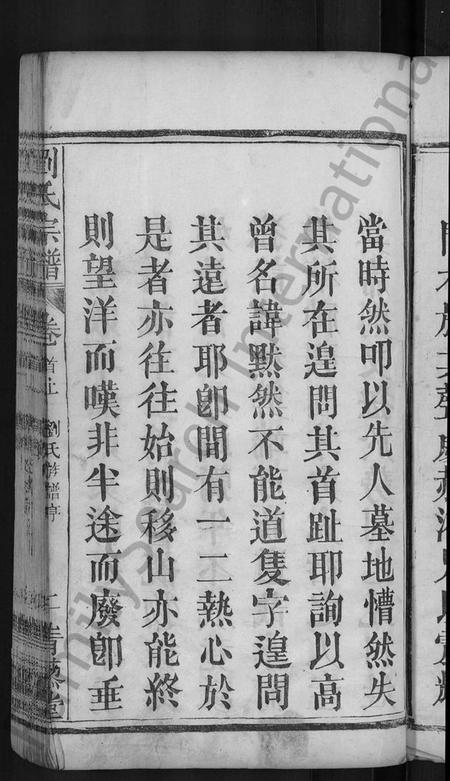 當時然叩以先人墓地懵然失
其所在遑問其首趾耶詢以高
曾名諱默然不能道隻字遑問
其遠者耶卽間有一二熱心於
是者亦往往始則移山亦能終
則望洋而嘆非半途而廢卽垂
劉氏宗譜 卷首上 劉氏族譜序
FamilySearch International